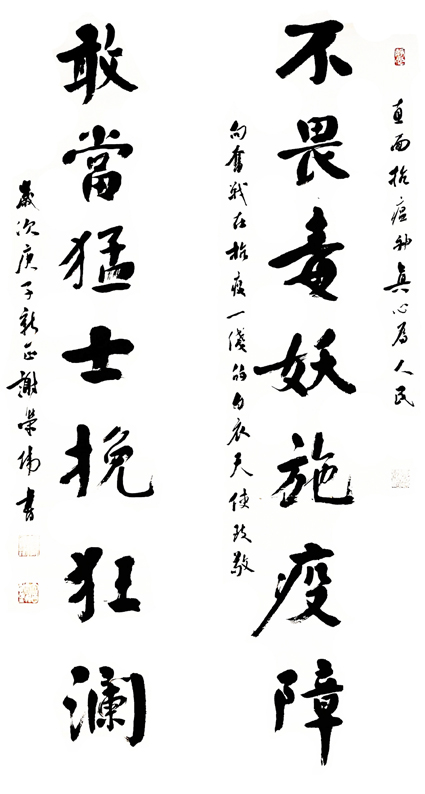 直面抗瘟神真心為人民
不畏毒妖施疫障
向奮战在抗疫一綫的白衣天使致敬
敢當猛士挽狂澜
歲次庚子新正謝榮偉書